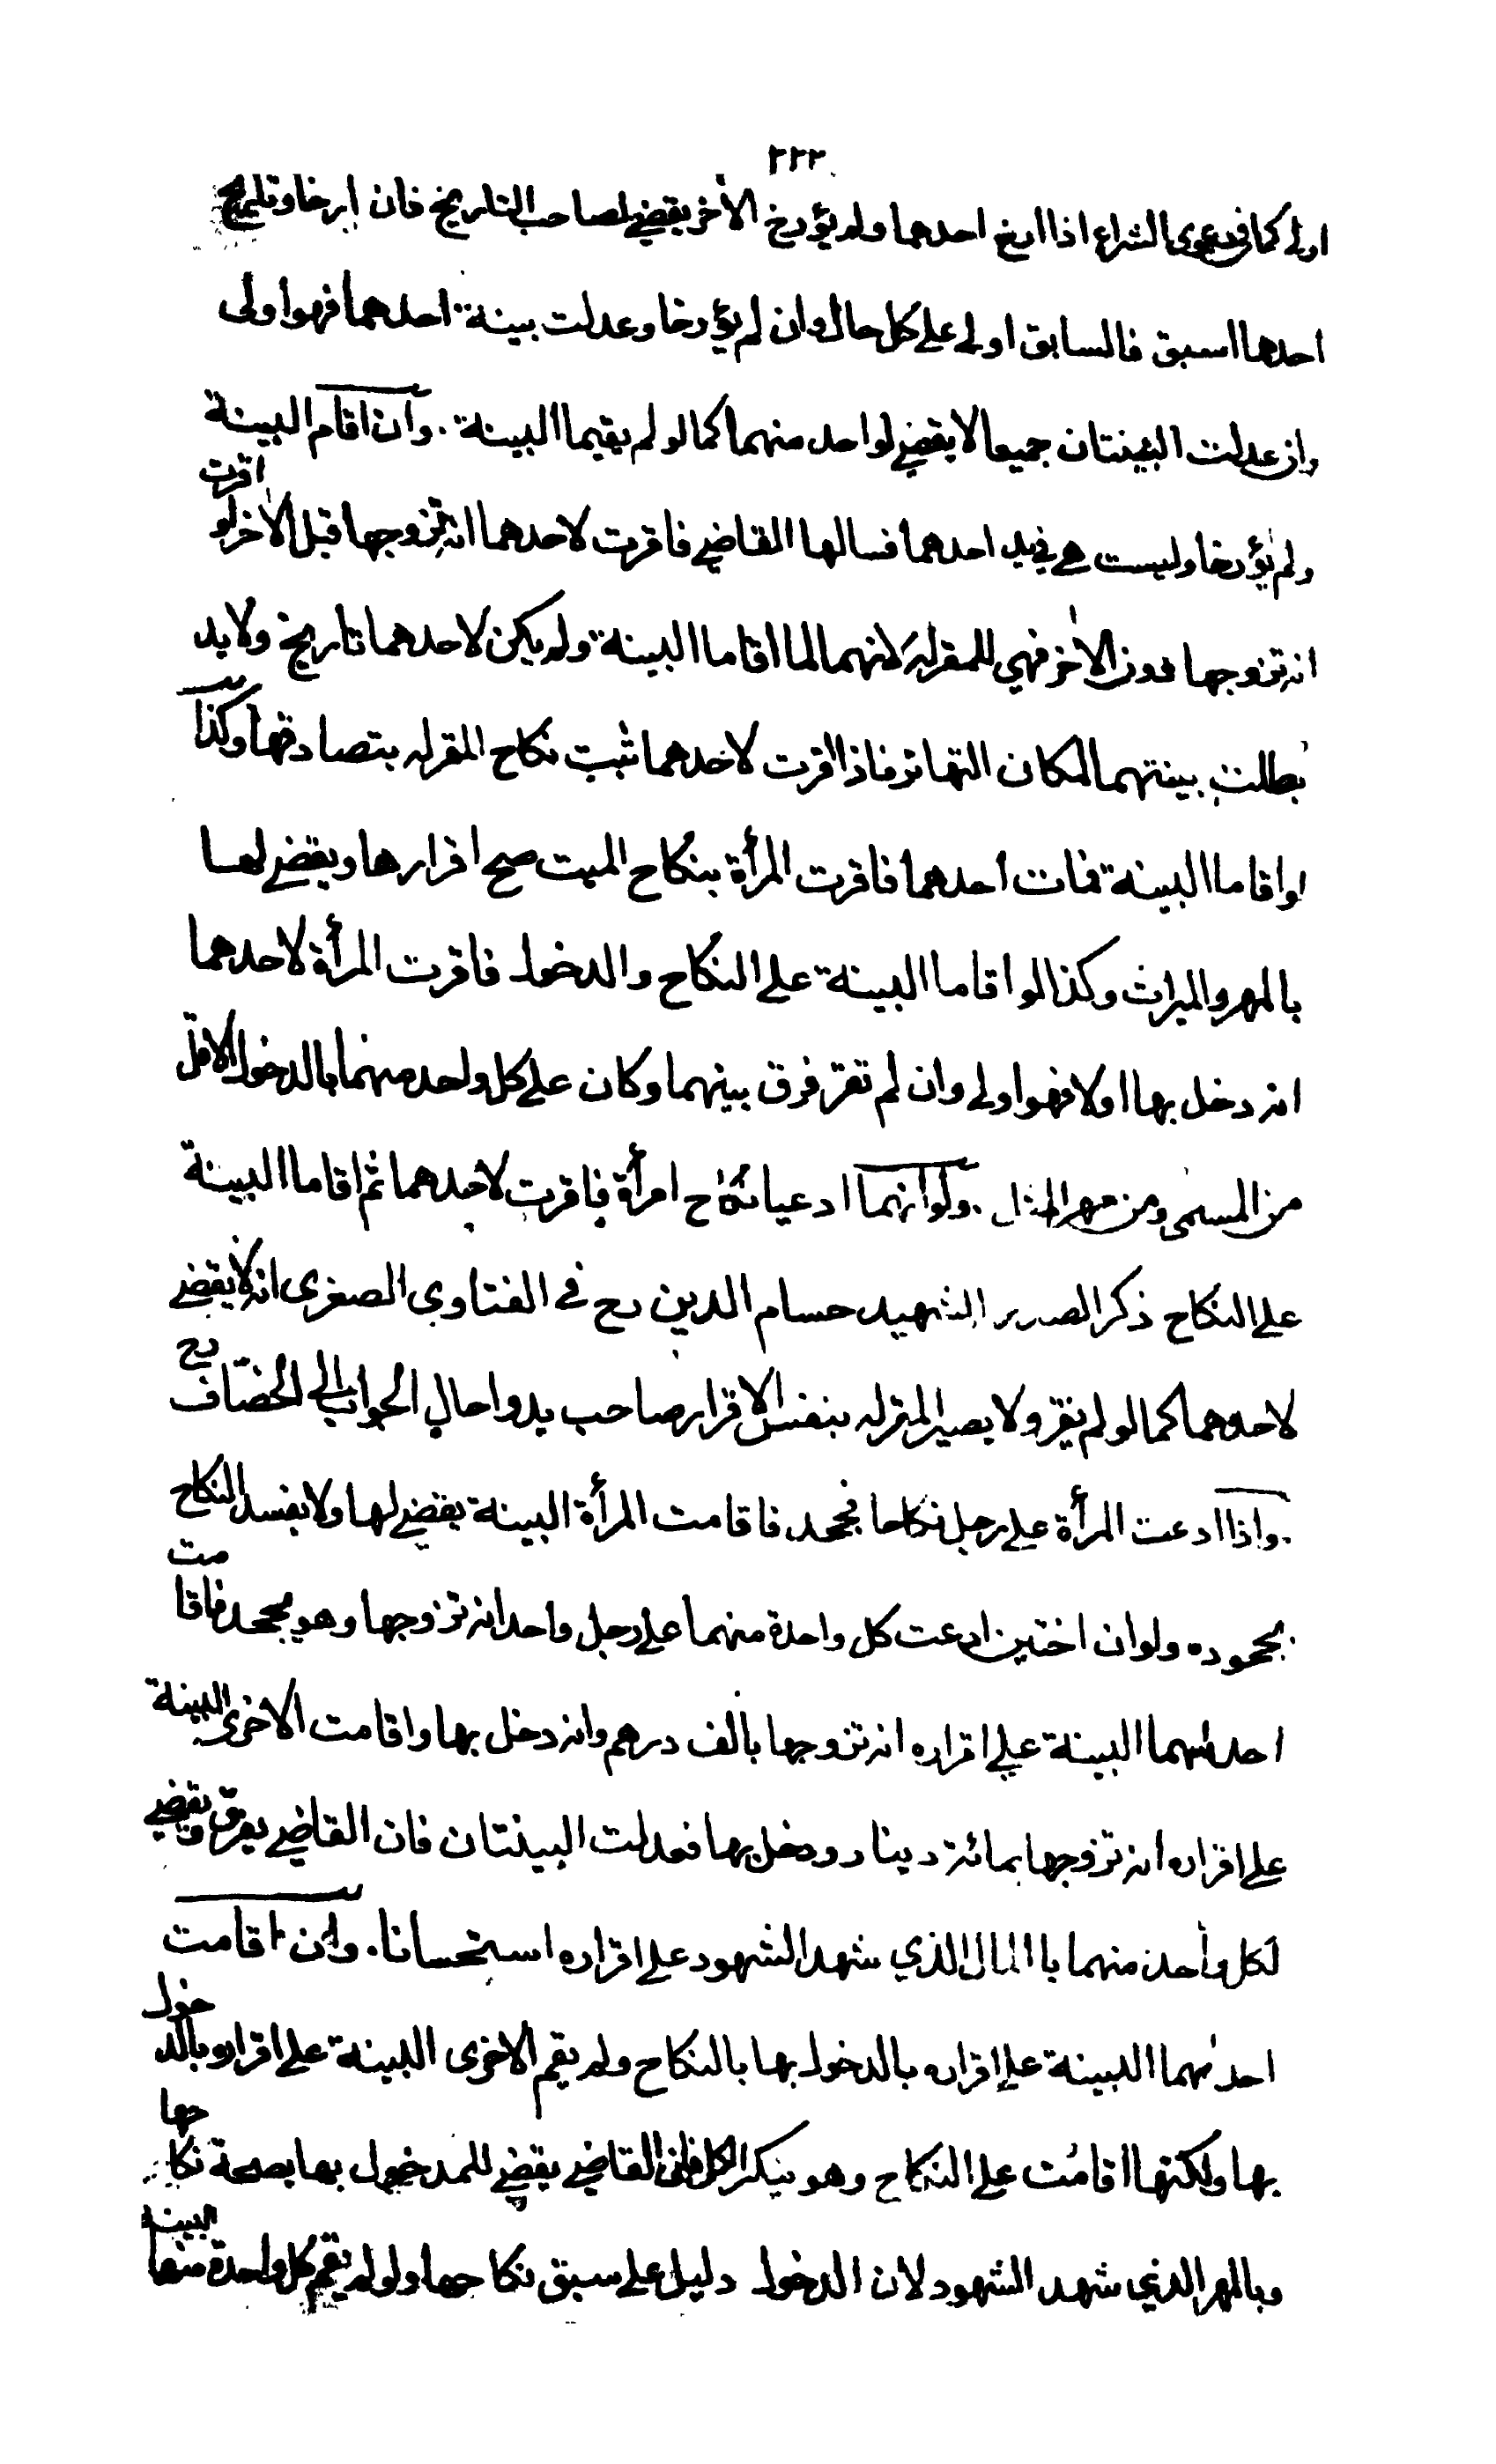 ٢٢٢
اولى كما في دعوى الشراء اذا ارخ احدهما ولم يؤرخ الآخر يقضي لصاحب التاريخ فان ارخا وتاريخ
احدهما اسبق فالسابق اولى على كل حال وان لم يؤرخا وعدلت بينة احدهما فهو اولى
وان عدلت البينتان جميعا لا يقضي لواحد منهما كما لو لم يقيما البينة . وان اقام البينة
ولم يؤرخا وليست هي في يد احدهما فسالها القاضي فاقرت لاحدهما انه تزوجها قبل الآخر او اقرت
انه تزوجها دون الآخر فهي للمقر له لانهما لما اقاما البينة ولم يكن لاحدهما تاريخ ولا يد
بطلت بينتهما لمكان التهاتر فاذا اقرت لاحدهما ثبت نكاح المقر له بتصادقهما وكذا
لو اقاما البينة فمات احدهما فاقرت المرأة بنكاح الميت صح اقرارها ويقضي لها
بالمهر والميراث وكذا لو اقاما البينة على النكاح والدخول فاقرت المرأة لاحدهما
انه دخل بها اولا فهو اولى وان لم تقر فرق بينهما وكان على كل واحد منهما بالدخول الاقل
من المسمى ومن مهر المثل . ولو انهما ادعيا نكاح امرأة فاقرت لاحدهما ثم اقاما البينة
على النكاح ذكر الصدر الشهيد حسام الدين رح في الفتاوى الصغرى انه لا يقضي
لاحدهما كما لو لم يقر ولا يصير المقر له بنفس الاقرار صاحب يد واحال الجواب الى الخصاف رح
. واذا ادعت المرأة على رجل نكاحا فجحد فاقامت المرأة البينة يقضي لها ولا يفسد النكاح
بجحوده ولو ان اختين ادعت كل واحدة منهما على رجل واحد انه تزوجها وهو يجحد فاقامت
احدٰيهما البينة على اقراره انه تزوجها بالف درهم وانه دخل بها واقامت الاخرى البينة
على اقراره انه تزوجها بمائة دينار ودخل بها فعدلت البينتان فان القاضي يفرق ويقضي
لكل واحدة منهما با المال الذي شهد الشهود على اقراره استحسانا . وان اقامت
احدٰيهما البينة على اقراره بالدخول بها بالنكاح ولم يقم الاخرى البينة على اقراره بالدخول
بها ولكنها اقامت على النكاح وهو ينكر الكل فان القاضي يقضي للمدخول بها بصحة نكاحها
وبالمهر الذي شهد الشهود لان الدخول دليل على سبق نكاحها ولو لم يقم كل واحدة منهما البينة